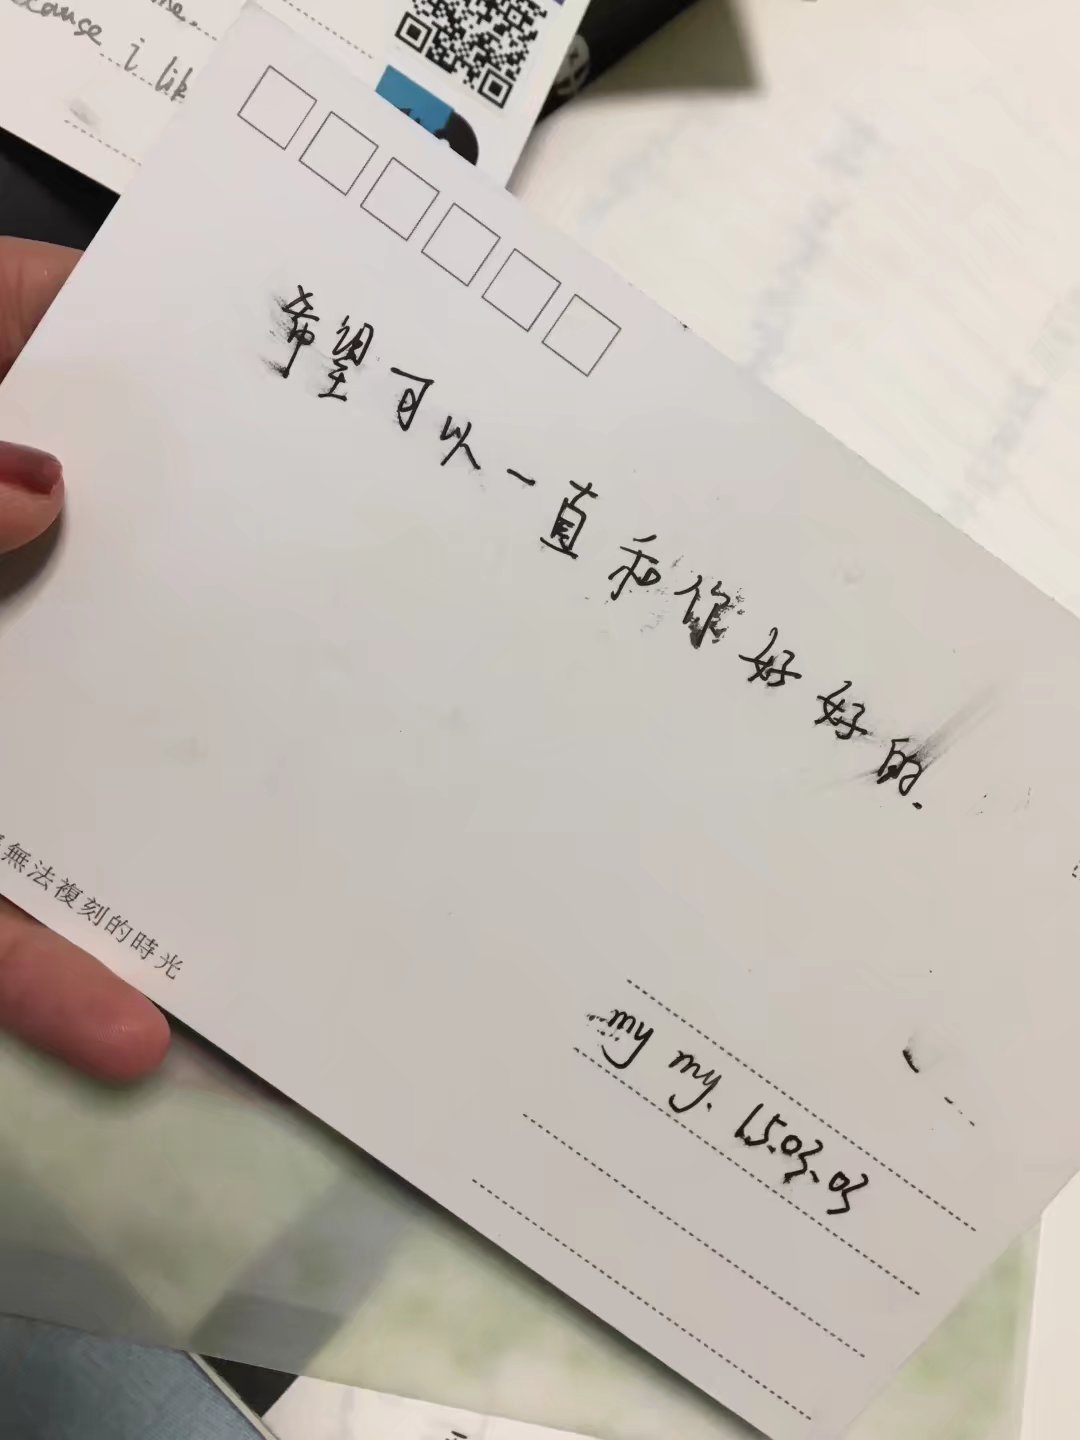 ause i lik
希望可以一直和你好好的.
無法複刻的時光
my my. 15.03.03